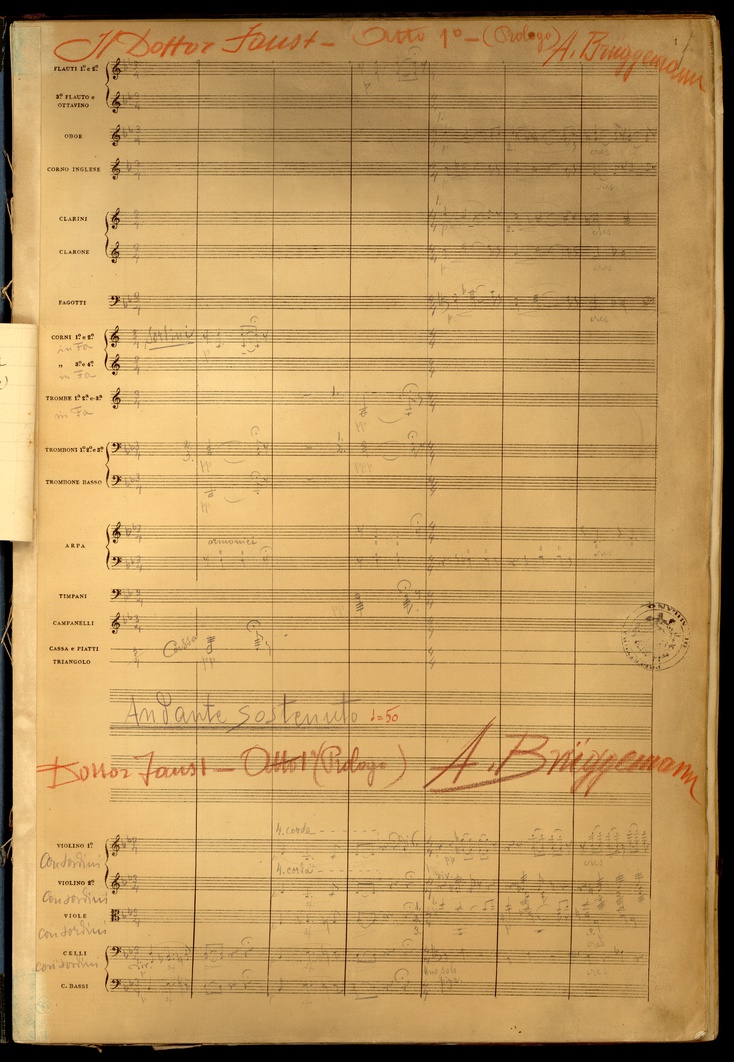 Il Dottor Faust - Atto 1º - (Prologo) A. Brüggemann
1
FLAUTI 1.º e 2.º
3.º FLAUTO e
OTTAVINO
p
OBOE
1.
p
cres
CORNO INGLESE
cres
CLARINI
1.
p
2.
cres
CLARONE
cres
FAGOTTI
p
cres
CORNI 1.º e 2.º
in Fa
Sordini
p
„ 3.º e 4.º
in Fa
TROMBE 1.ª 2.ª e 3.ª
in Fa
pp
TROMBONI 1.º 2.º e 3.º
pp
ppp
TROMBONE BASSO
pp
ARPA
armonici
TIMPANI
ppp
CAMPANELLI
CASSA e PIATTI
Cassa
pp
TRIANGOLO
Andante sostenuto ♩=50
Dottor Faust - Atto 1º (Prologo) A. Brüggemann
4. corda
VIOLINO 1.º
Con Sordini
pp
cres
4. corda
VIOLINO 2.º
Con Sordini
div.
VIOLE
con Sordini
CELLI
con Sordini
cres
C. BASSI